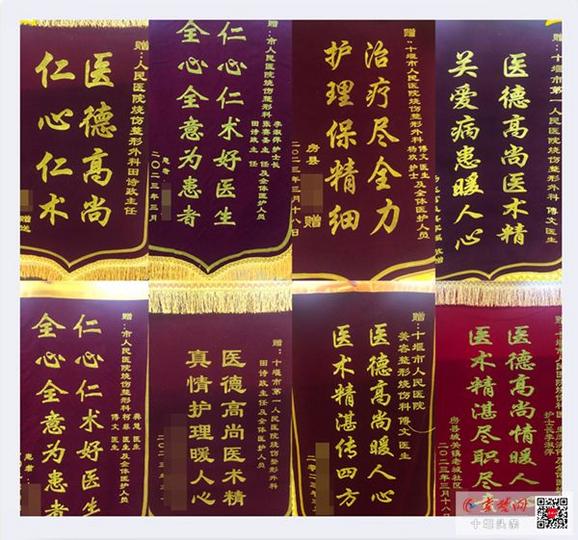 赠:人民医院烧伤整形外科田诗政主任
医德高尚
仁心仁术
赠送
赠:市人民医院烧伤整形外科
李淑萍护士长
张赛圣主任
田诗政主任及全体医护人员
仁心仁术好医生
全心全意为患者
二〇二三年三月
赠:十堰市人民医院烧伤整形外科
傅文医生及全体医护人员
杨欢护士
治疗尽全力
护理保精细
房县
赠
二〇二三年三月十八日
赠:十堰市第一人民医院烧伤整形外科 傅文医生
医德高尚医术精
关爱病患暖人心
赠:市人民医院烧伤整形外科
傅文医生
医生及全体医护人员
仁心仁术好医生
全心全意为患者
患者:
赠:十堰市第一人民医院烧伤整形外科
田诗政主任及全体医护人员
医德高尚医术精
真情护理暖人心
二〇二三年三月
赠:十堰市人民医院
美容整形烧伤科傅文医生
医德高尚暖人心
医术精湛传四方
二零二三年三
护士长李淑萍
医德高尚情暖人
医术精湛尽职尽责
房县城关镇老城社区
二〇二三年三月十八日
秦楚网
十堰头条